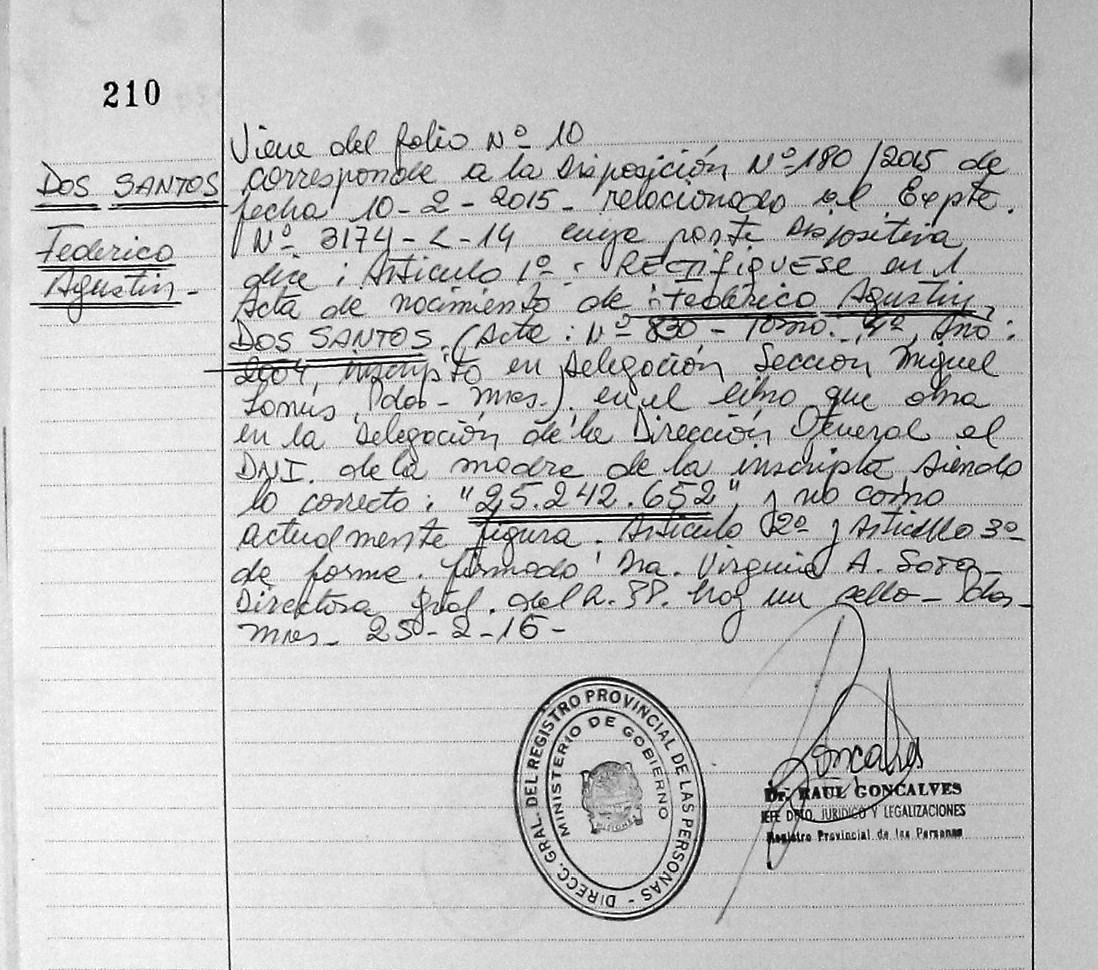 210
DOS SANTOS
Federico
Agustin -
Viene del folio Nº 10
corresponde a la Disposición Nº 180/2015 de
fecha 10-2-2015 - relacionado al Expte.
Nº 3174-L-14 cuya parte Dispositiva
dice: Artículo 1º - RECTIFIQUESE en l
Acta de nacimiento de: Federico Agustin
DOS SANTOS. (Acta: Nº 830 - Tomo: 4º, Año:
2004, inscripto en Delegación Sección Miguel
Lanús, Pdas - Mnes.) en el libro que obra
en la Delegación de la Dirección General el
DNI. de la madre de la inscripta siendo
lo correcto: "25.242.652" y no como
actualmente figura. Artículo 2º y Artículo 3º
de forma. firmado: Dra. Virginia A.
Directora Gral. del R.PP. hay un sello - Pdas -
Mnes - 25-2-15 -
DIRECC. GRAL. DEL REGISTRO PROVINCIAL DE LAS PERSONAS -
MINISTERIO DE GOBIERNO
MISIONES
Goncalves
Dr. RAUL GONCALVES
JEFE DPTO. JURIDICO Y LEGALIZACIONES
Registro Provincial de las Personas